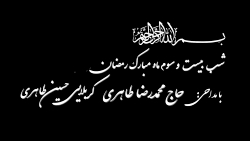 بسم الله الرحمن الرحیم
شب بیست و سوم ماه مبارک رمضان
با مداحی: حاج محمدرضا طاهری کربلایی حسین طاهری